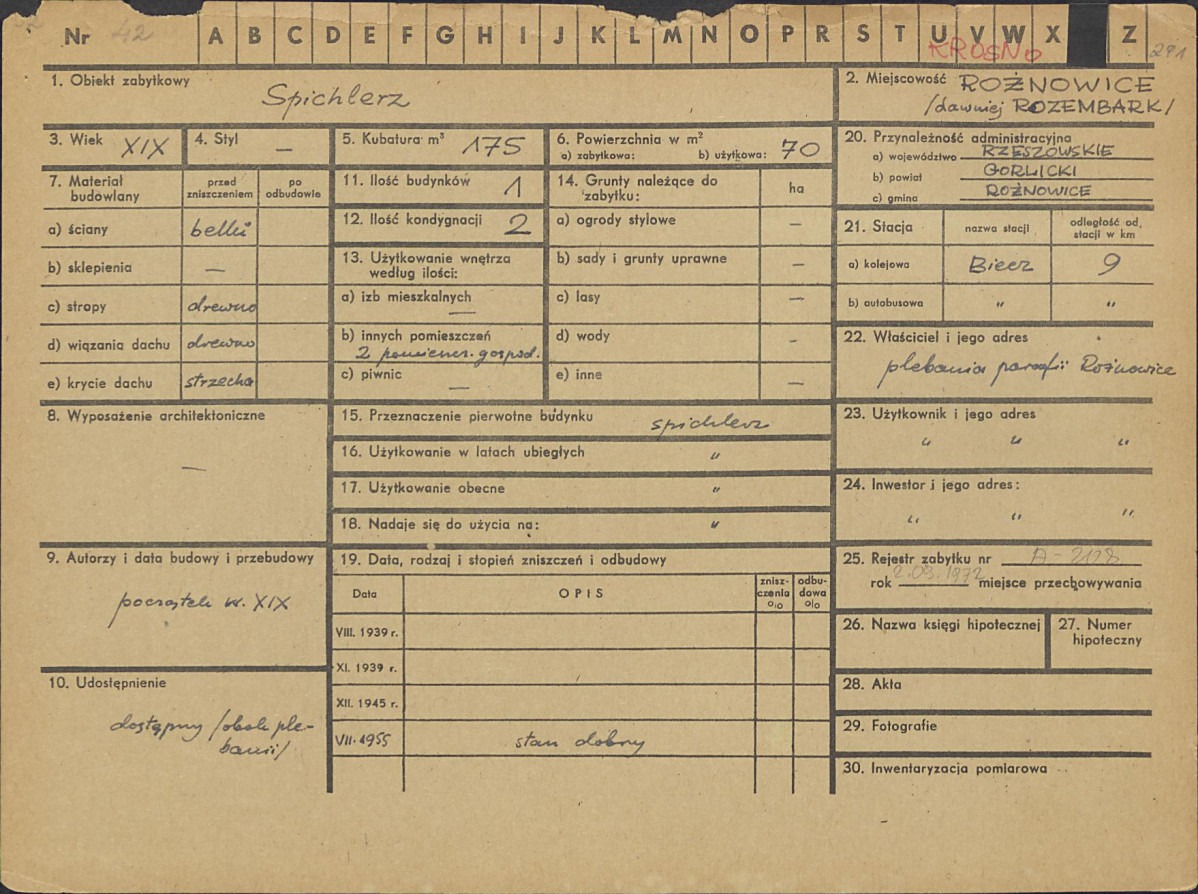 Nr 42 A B C D E F G H I J K L M N O P R S T U V W X Z
KROSNO
291
1. Obiekt zabytkowy
Spichlerz
2. Miejscowość ROŻNOWICE
/dawniej ROZEMBARK/
3. Wiek XIX
4. Styl —
5. Kubatura m³ 175
6. Powierzchnia w m²
a) zabytkowa: b) użytkowa: 70
20. Przynależność administracyjna
a) województwo RZESZOWSKIE
b) powiat GORLICKI
c) gmina ROŻNOWICE
7. Materiał budowlany
przed zniszczeniem
po odbudowie
a) ściany belki
b) sklepienia —
c) stropy drewno
d) wiązania dachu drewno
e) krycie dachu strzecha
11. Ilość budynków 1
12. Ilość kondygnacji 2
13. Użytkowanie wnętrza
według ilości:
a) izb mieszkalnych —
b) innych pomieszczeń
2 pomieszcz. gospod.
c) piwnic —
14. Grunty należące do
zabytku:
ha
a) ogrody stylowe —
b) sady i grunty uprawne —
c) lasy —
d) wody —
e) inne —
21. Stacja
nazwa stacji
odległość od
stacji w km
a) kolejowa Biecz 9
b) autobusowa " "
22. Właściciel i jego adres
plebania parafii Rożnowice
8. Wyposażenie architektoniczne
—
15. Przeznaczenie pierwotne budynku spichlerz
16. Użytkowanie w latach ubiegłych "
17. Użytkowanie obecne "
18. Nadaje się do użycia na: "
23. Użytkownik i jego adres
" " "
24. Inwestor i jego adres:
" " "
9. Autorzy i data budowy i przebudowy
początek w. XIX
10. Udostępnienie
dostępny /obok ple-
banii/
19. Data, rodzaj i stopień zniszczeń i odbudowy
Data
OPIS
znisz-
czenia
o/o
odbu-
dowa
o/o
VIII. 1939 r.
XI. 1939 r.
XII. 1945 r.
VII. 1955 stan dobry
25. Rejestr zabytku nr A-2128
rok 2.09.1972 miejsce przechowywania
26. Nazwa księgi hipotecznej
27. Numer
hipoteczny
28. Akta
29. Fotografie
30. Inwentaryzacja pomiarowa